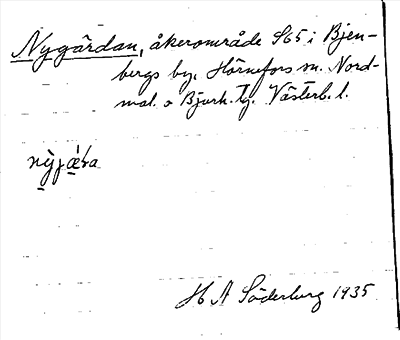 Nygårdan, åkerområde S65 i Bjen-
bergs by, Hörnefors sn. Nord-
mal. o Bjurh. tg. Västerb. l.
H A Söderburg 1935